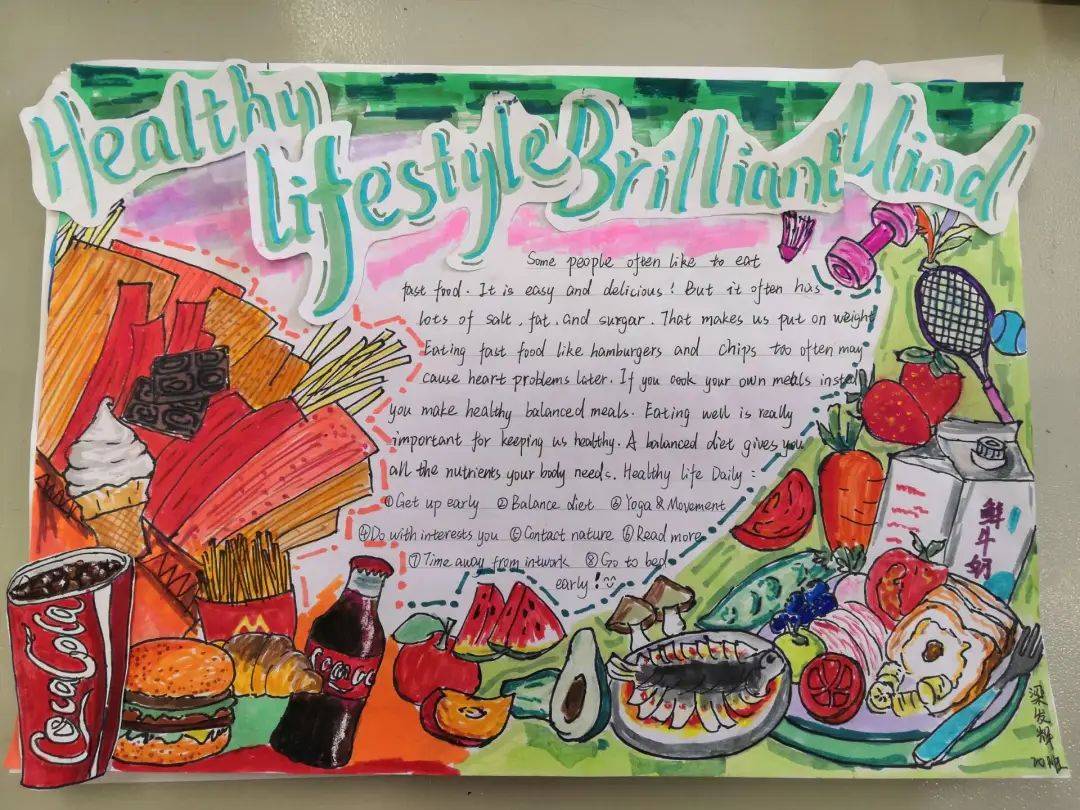 Healthy
lifestyle Brilliant Mind
Some people often like to eat
fast food. It is easy and delicious! But it often has
lots of salt, fat, and surgar. That makes us put on weight
Eating fast food like hamburgers and chips too often may
cause heart problems later. If you cook your own meals insted
you make healthy balanced meals. Eating well is really
important for keeping us healthy. A balanced diet gives you
all the nutrients your body needs. Healthy life Daily :
①Get up early ②Balance diet ③Yoga & Movement
④Do with interests you ⑤Contact nature ⑥Read more
⑦Time away from intwork ⑧Go to bed
early!
鲜牛奶
CocaCola
M